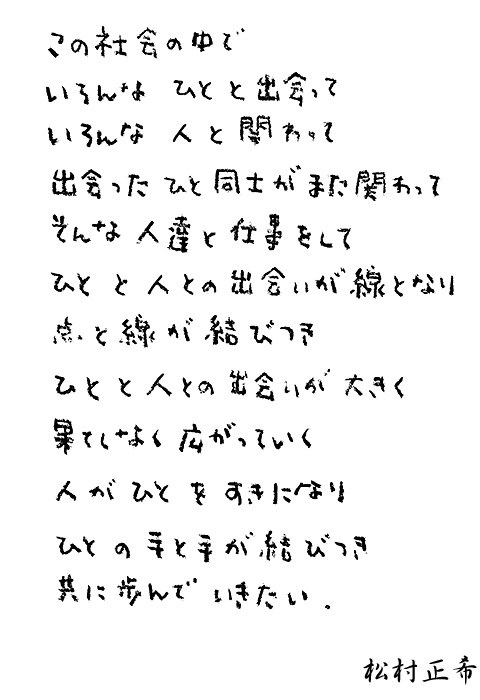 この社会の中で
いろんな ひとと出会って
いろんな 人と関わって
出会ったひと同士がまた関わって
そんな人達と仕事をして
ひとと人との出会いが線となり
点と線が結びつき
ひとと人との出会いが大きく
果てしなく広がっていく
人がひとをすきになり
ひとの手と手が結びつき
共に歩んでいきたい.
松村正希